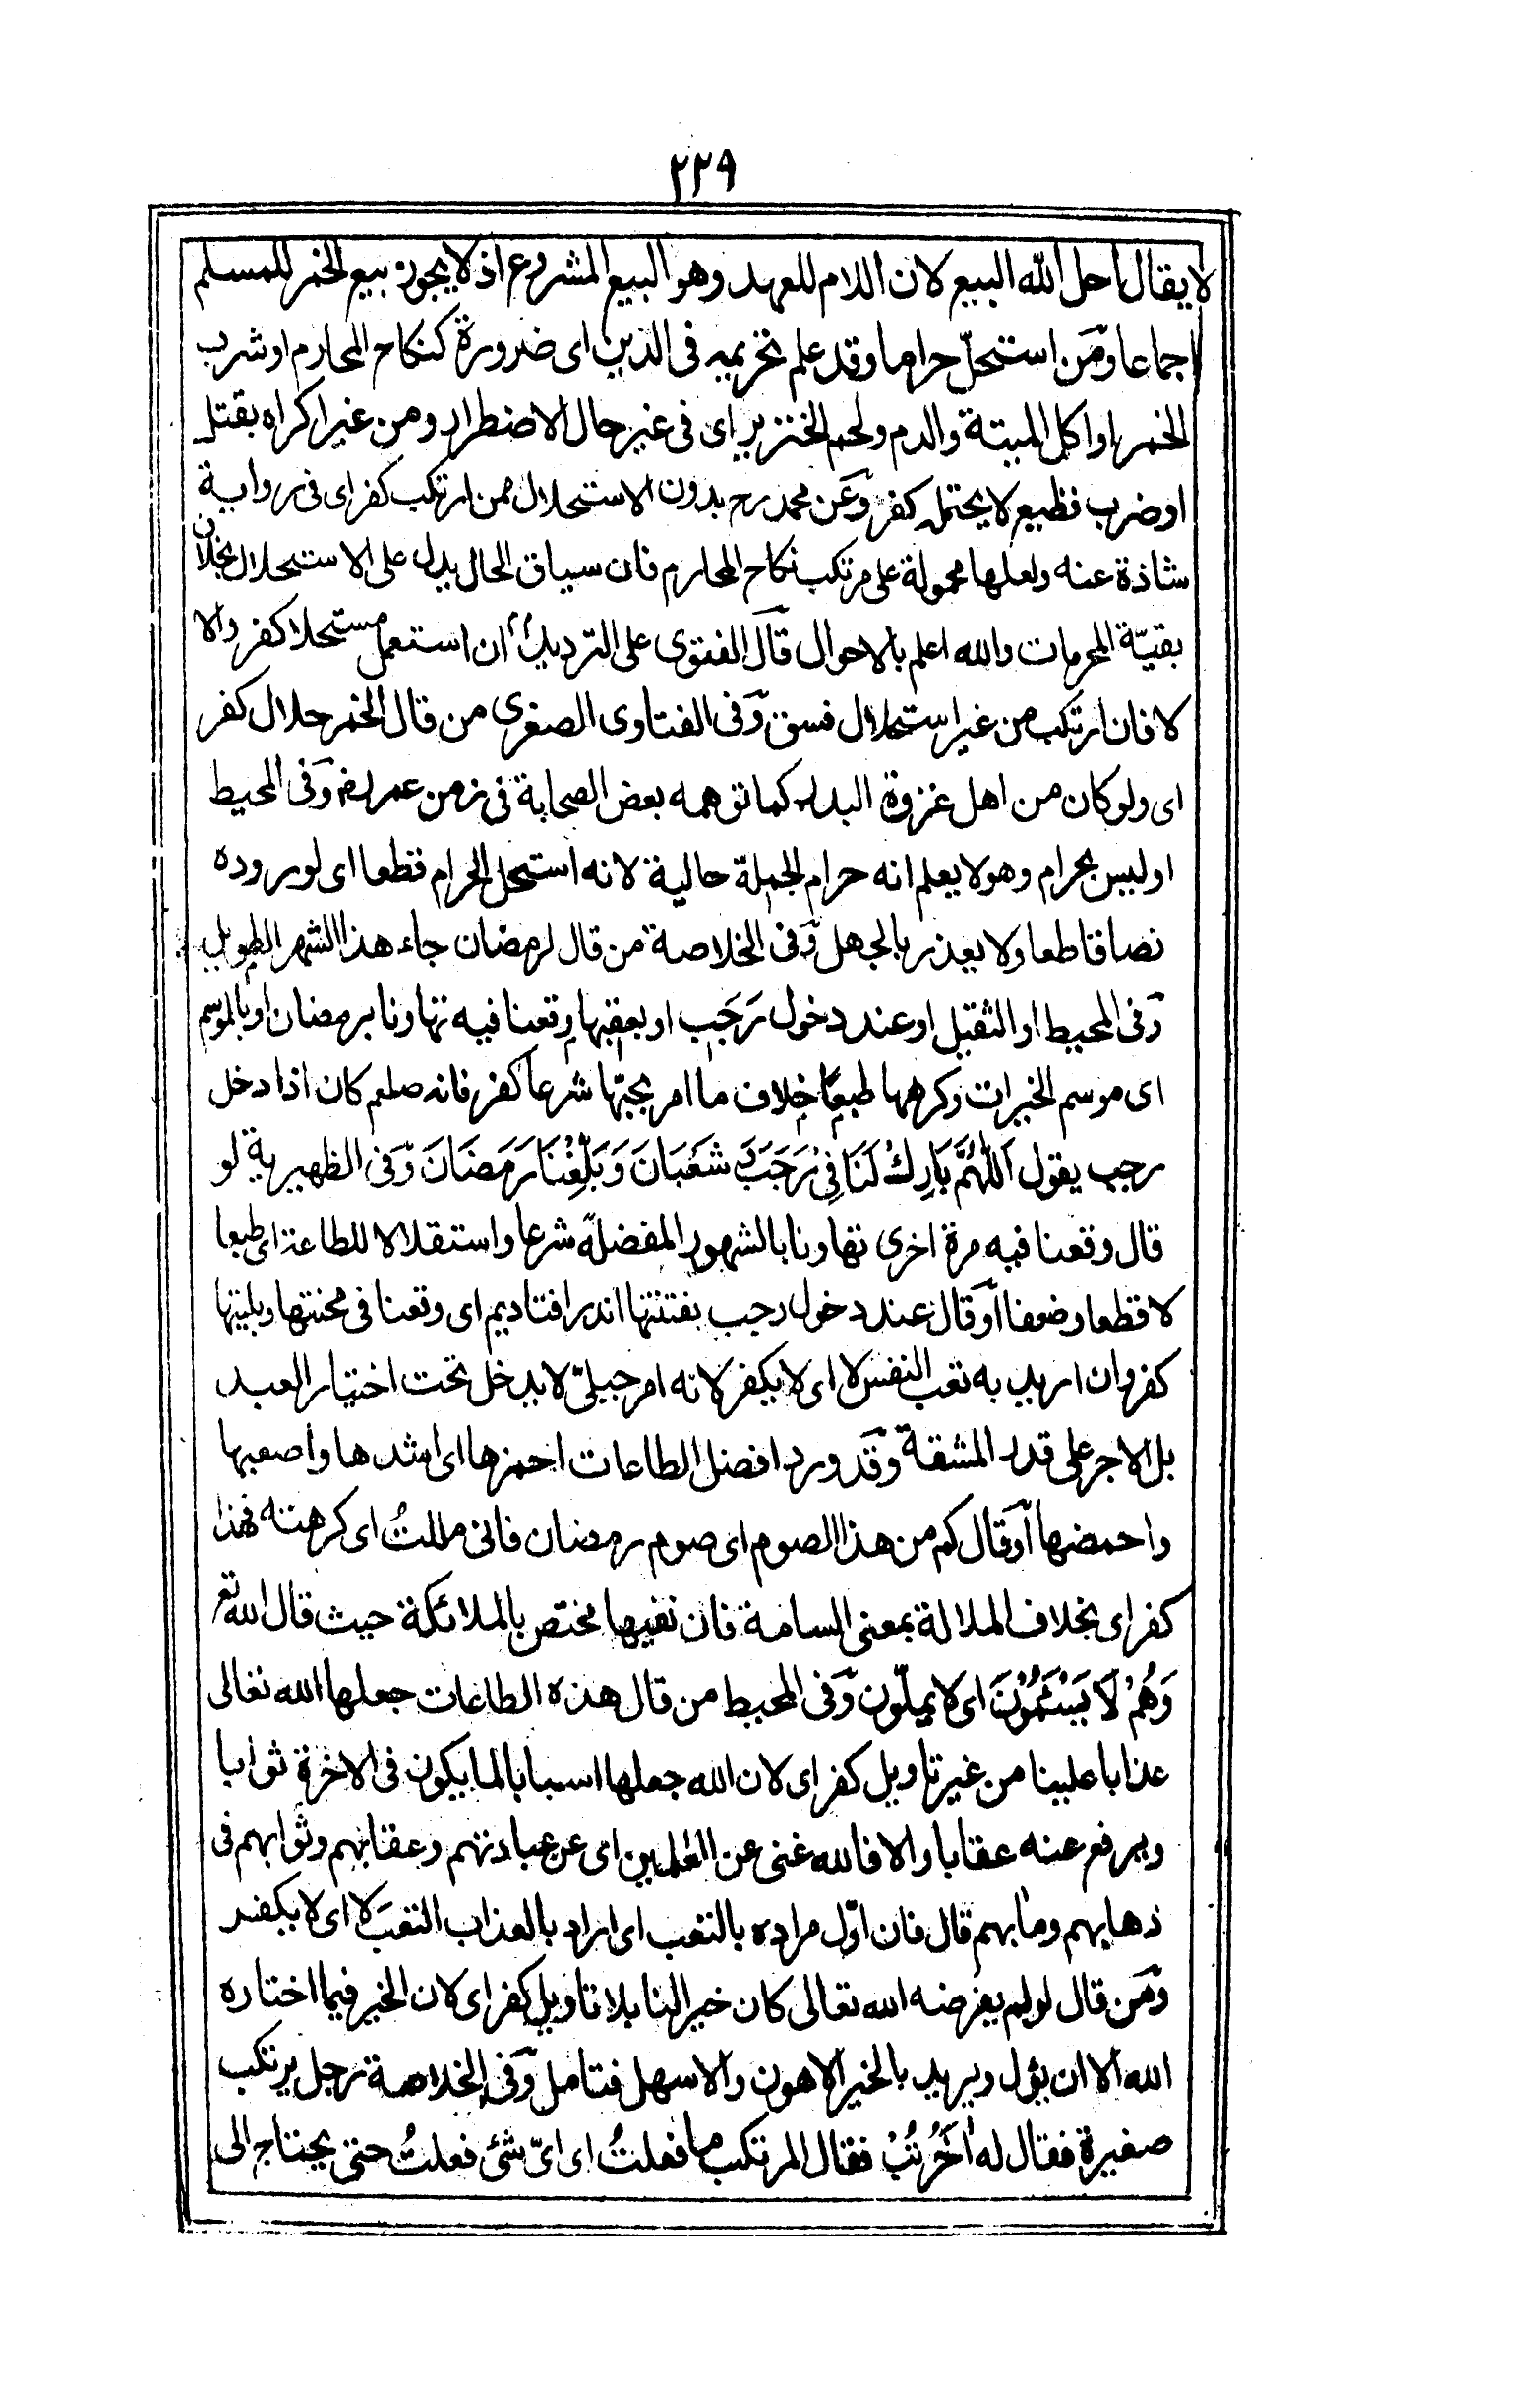 ٢٢٩
لا يقال احل الله البيع لان اللام للعهد وهو البيع المشروع اذ لا يجوز بيع الخمر للمسلم
اجماعا ومن استحلّ حراما وقد علم تحريمه فى الدين اى ضرورة كنكاح المحارم او شرب
الخمر او اكل الميتة والدم ولحم الخنزير اى فى غير حال الاضطرار ومن غير اكراه بقتل
او ضرب فظيع لا يحتمله كفر وعن محمد رح بدون الاستحلال ممن ارتكب كفر اى فى رواية
شاذة عنه ولعلها محمولة على مرتكب نكاح المحارم فان سياق الحال يدل على الاستحلال بخلاف
بقيّة المحرمات والله اعلم بالاحوال قال الفتوى على الترديد ان استعمل مستحلا كفر والا
لا فان ارتكب من غير استحلال فسق وفى الفتاوى الصغرى من قال الخمر حلال كفر
اى ولو كان من اهل غزوة البدر كما توهمه بعض الصحابة فى زمن عمر رض وفى المحيط
او ليس بحرام وهو لا يعلم انه حرام الجملة حالية لانه استحل الحرام قطعا اى لوروده
نصا قاطعا ولا يعذر بالجهل وفى الخلاصة من قال لرمضان جاء هذا الشهر الطويل
وفى المحيط او الثقيل او عند دخول رَجَب او بعقبها وقعنا فيه تهاونا برمضان او بالموسم
اى موسم الخيرات وكرهها طبعا خلاف ما امر بحبّها شرعا كفر فانه صلعم كان اذا دخل
رجب يقول اَللّٰهُمَّ بَارِكْ لَنَا فِىْ رَجَبَ وَ شَعْبَانَ وَبَلِّغْنَا رَمَضَانَ وفى الظهيرية لو
قال وقعنا فيه مرة اخرى تهاونا بالشهور المفضلة شرعا واستقلالا للطاعة اى طبعا
لا قطعا وضعفا او قال عند دخول رجب بفتنتها اندر افتاديم اى وقعنا فى محنتها وبليتها
كفر وان اريد به تعب النفس لا اى لا يكفر لانه امر جبلىّ لا يدخل تحت اختيار العبد
بل الاجر على قدر المشقة وقد ورد افضل الطاعات احمزها اى اشدها واصعبها
واحمضها او قال كم من هذا الصوم اى صوم رمضان فانى مللتُ اى كرهته فهذا
كفر اى بخلاف الملالة بمعنى السامة فان نفيها مختص بالملائكة حيث قال الله تع
وَهُمْ لَا يَسْئَمُوْنَ اى لا يملّون وفى المحيط من قال هذه الطاعات جعلها الله تعالى
عذابا علينا من غير تاويل كفر اى لان الله جعلها اسبابا لما يكون فى الاخرة ثوابا
ويرفع عنه عقابا والا فالله غنى عن العٰلمين اى عن عبادتهم وعقابهم وثوابهم فى
ذهابهم ومأبهم قال فان اوّل مراده بالتعب اى اراد بالعذاب التعبَ لا اى لا يكفر
ومن قال لو لم يفرضه الله تعالى كان خيرا لنا بلا تاويل كفر اى لان الخير فيما اختاره
الله الا ان يؤل ويريد بالخير الاهون والاسهل فتامل وفى الخلاصة رجل يرتكب
صغيرة فقال له اٰخَرُ تُبْ فقال المرتكب ما فعلتُ اى اىّ شئ فعلتُ حتى يحتاج الى